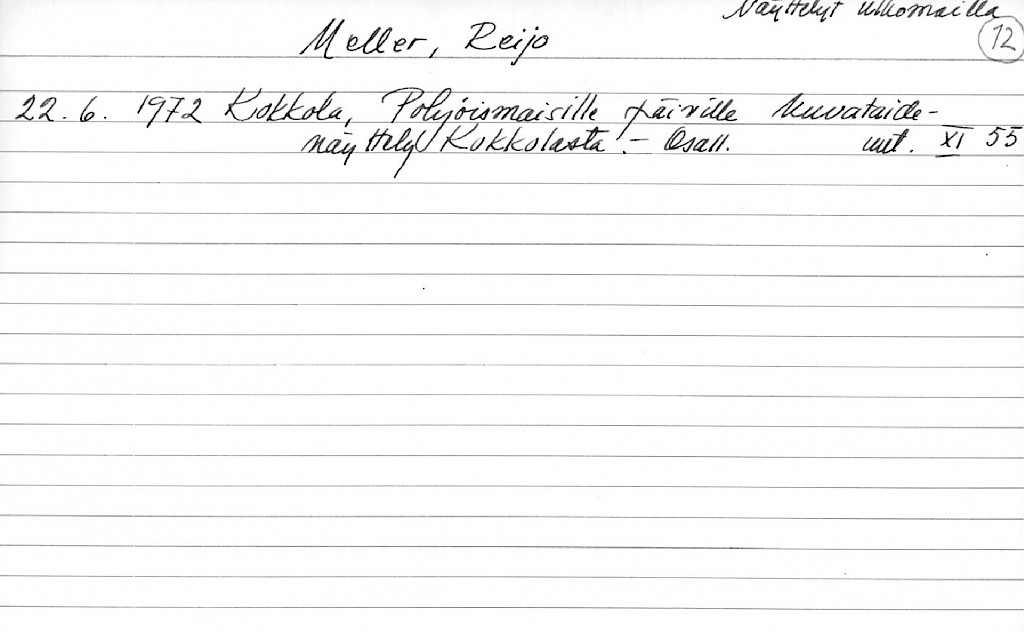 Näyttelyt ulkomailla
12
Meller, Reijo
22.6. 1972 Kokkola, Pohjoismaisille päiville kuvataide-
näyttely Kokkolasta. - Osall. uut. XI 55